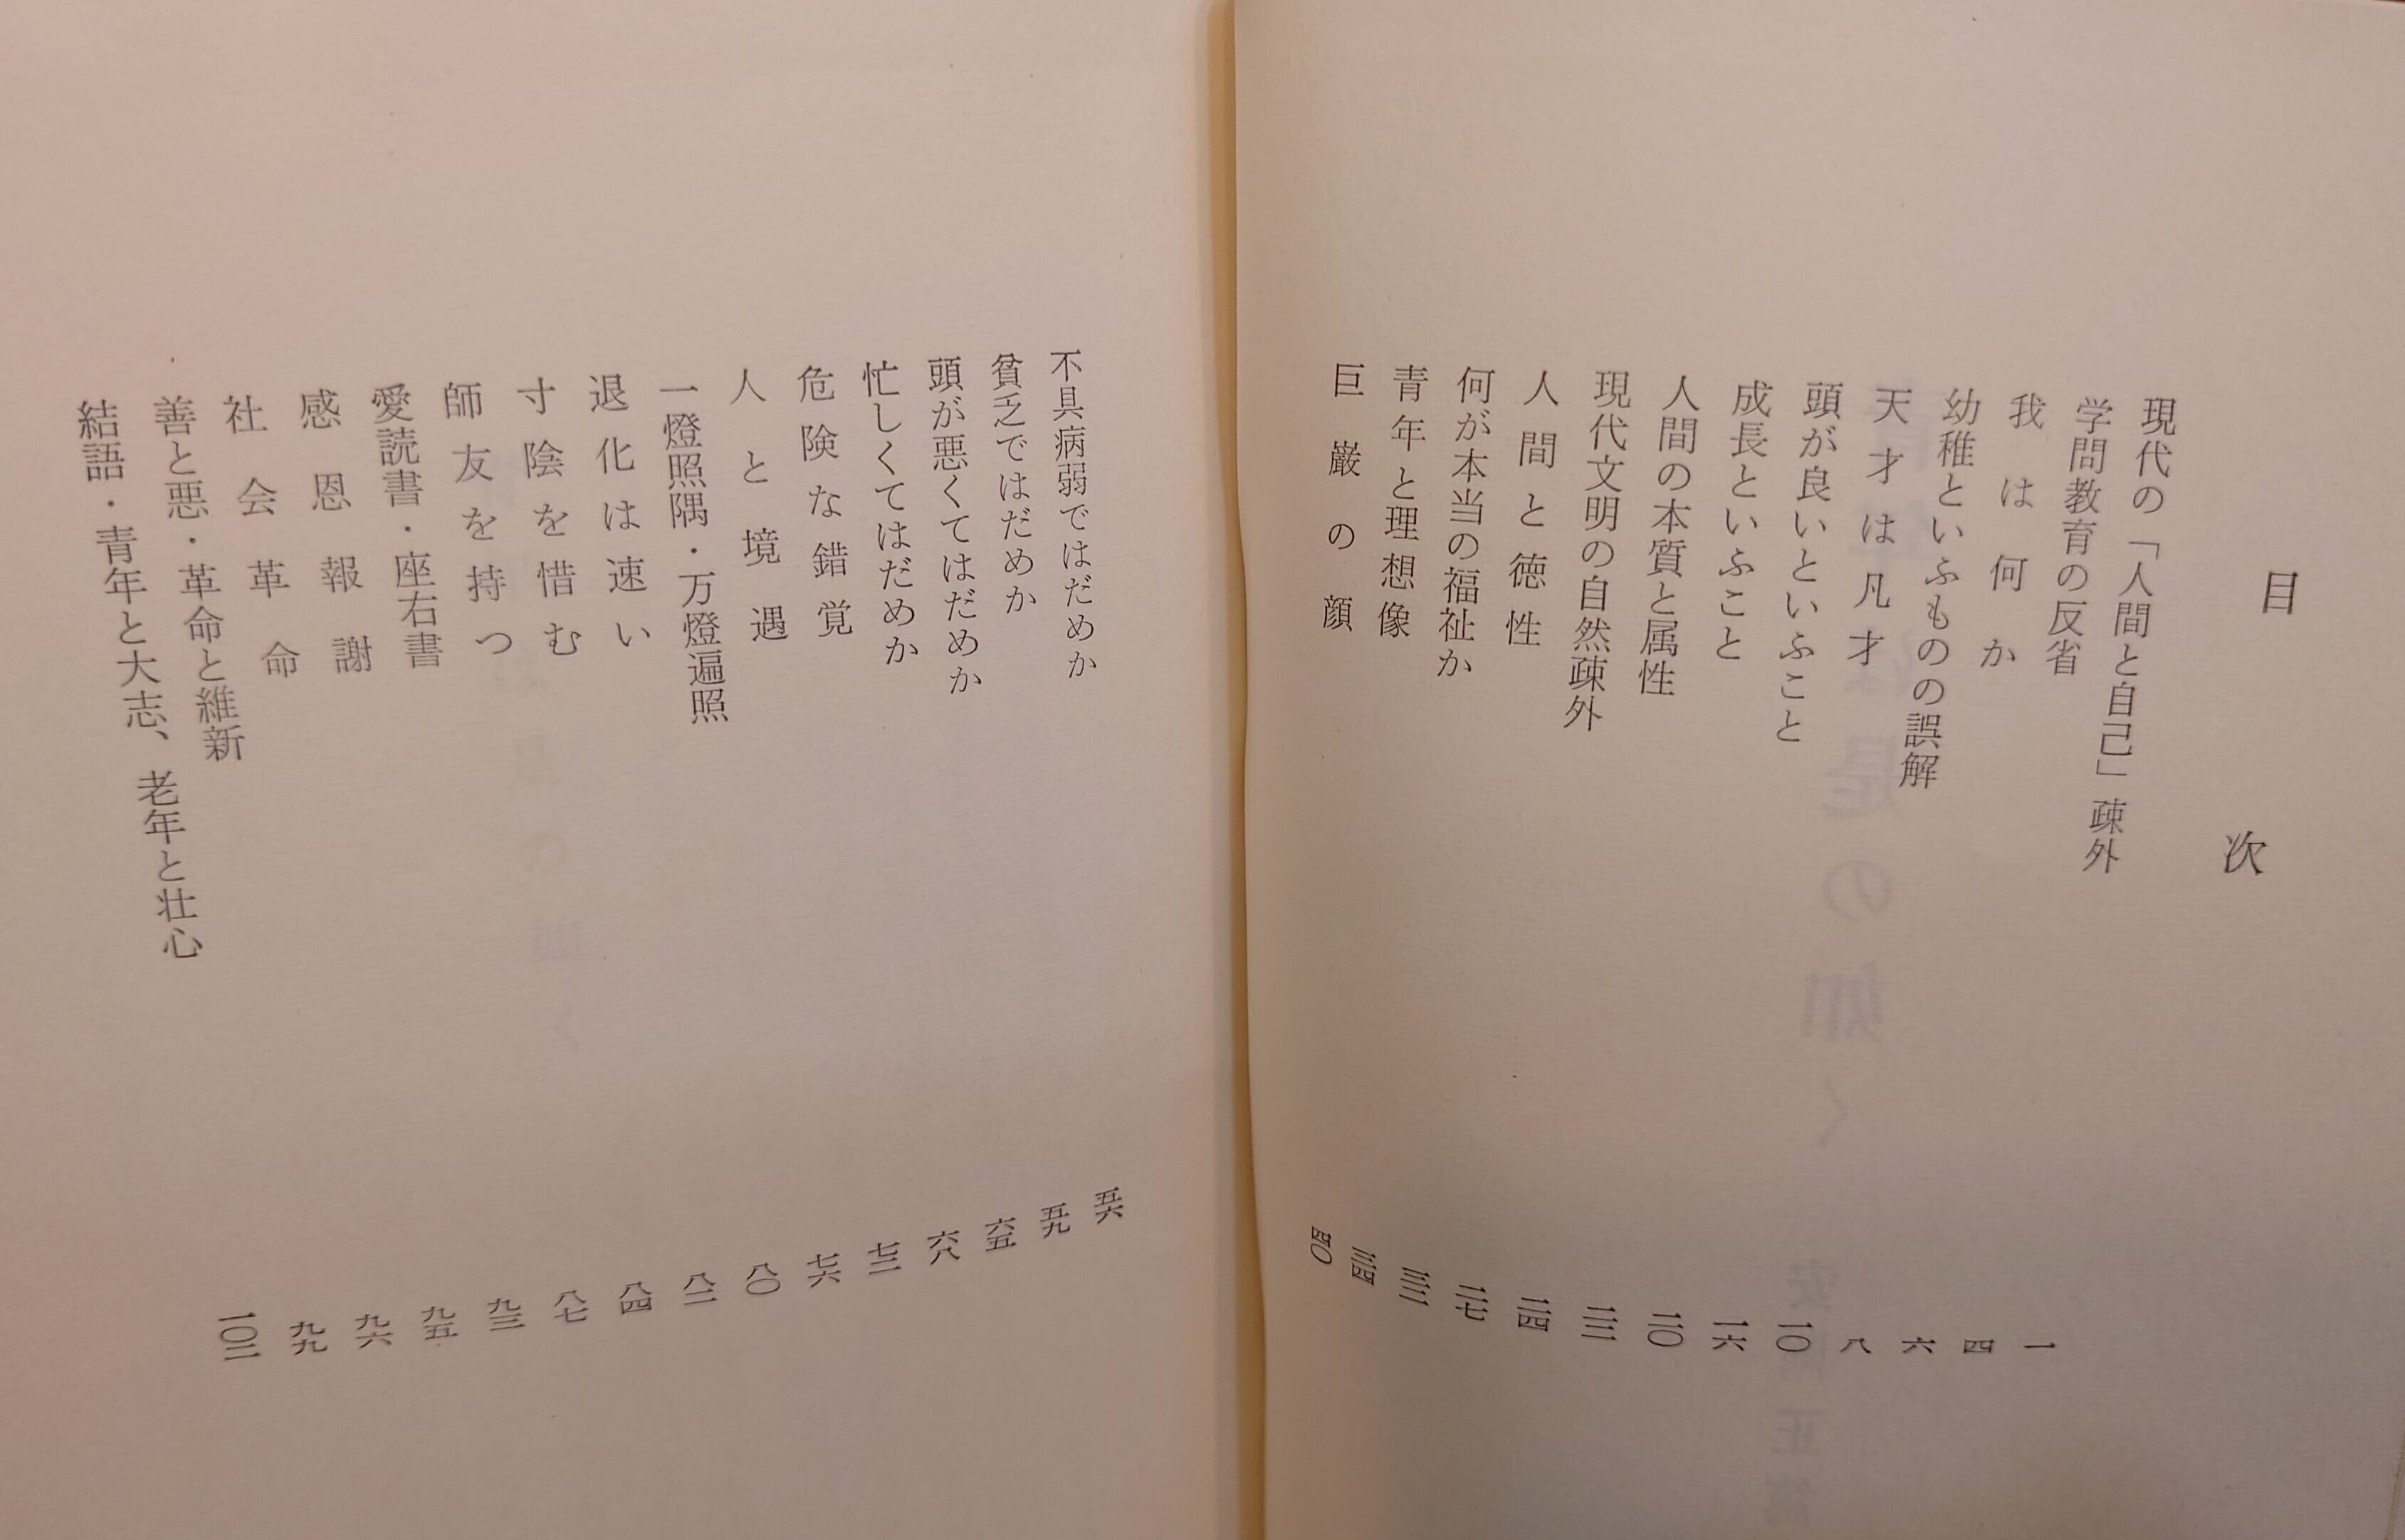 目次
現代の「人間と自己」疎外 一
学問教育の反省 四
我は何か 六
幼稚といふものの誤解 八
天才は凡才 一〇
頭が良いといふこと 一六
成長といふこと 二〇
人間の本質と属性 二二
現代文明の自然疎外 二四
人間と徳性 二七
何が本当の福祉か 三二
青年と理想像 三四
巨巌の顔 四〇
不具病弱ではだめか 五六
貧乏ではだめか 五九
頭が悪くてはだめか 六五
忙しくてはだめか 六八
危険な錯覚 七三
人と境遇 七六
一燈照隅・万燈遍照 八〇
退化は速い 八二
寸陰を惜む 八四
師友を持つ 八七
愛読書・座右書 九三
感恩報謝 九五
社会革命 九六
善と悪・革命と維新 九九
結語・青年と大志、老年と壮心 一〇二